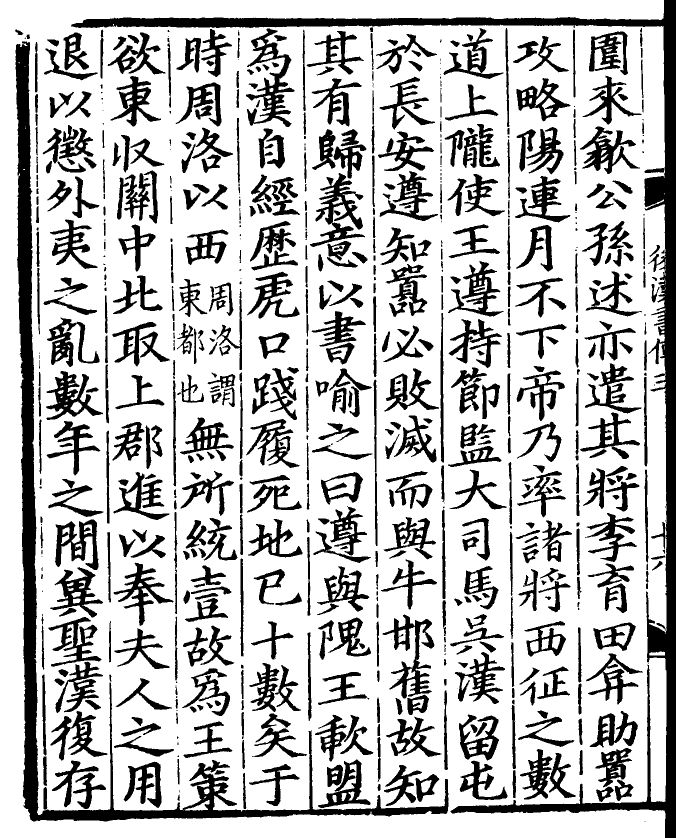 後漢書傳三
十六
圍來歙公孫述亦遣其將李育田弇助囂
攻略陽連月不下帝乃率諸將西征之數
道上隴使王遵持節監大司馬吳漢留屯
於長安遵知囂必敗滅而與牛邯舊故知
其有歸義意以書喻之曰遵與隗王歃盟
爲漢自經歷虎口踐履死地已十數矣于
時周洛以西周洛謂東都也無所統壹故爲王策
欲東収關中北取上郡進以奉夫人之用
退以懲外夷之亂數年之間冀聖漢復存